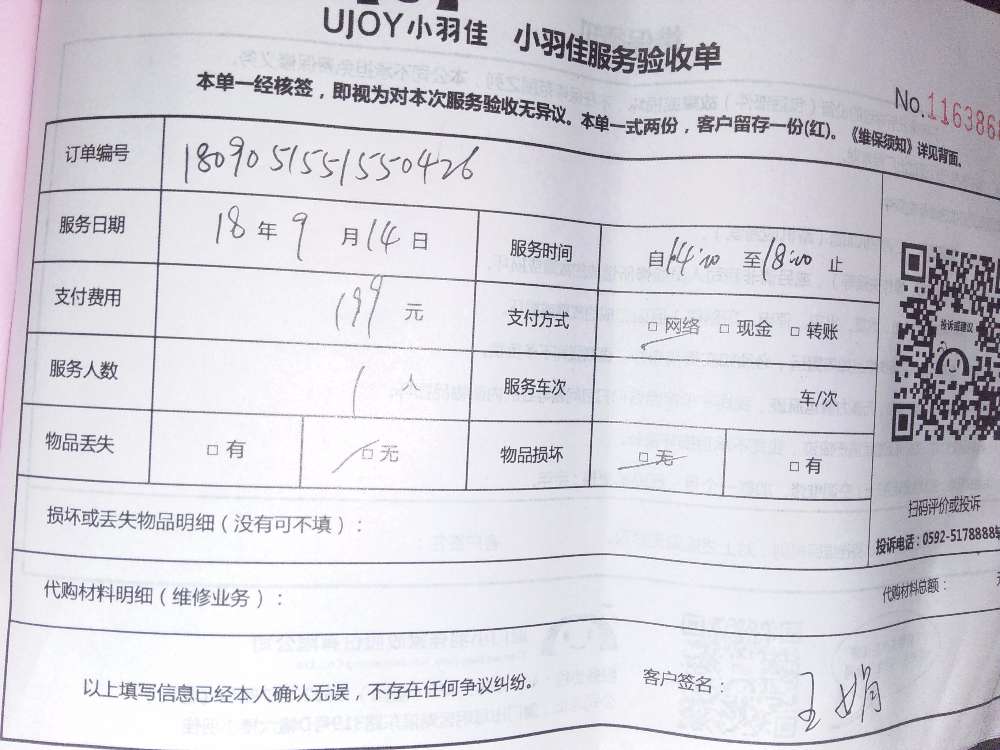 UJOY小羽佳 小羽佳服务验收单
本单一经核签，即视为对本次服务验收无异议。本单一式两份，客户留存一份(红)。《维保须知》详见背面。
No.1163866
订单编号 1809051551550426
服务日期 18年9月14日 服务时间 自14:00至18:00止
支付费用 199元 支付方式 □网络 □现金 □转账
服务人数 1人 服务车次 车/次
物品丢失 □有 □无 物品损坏 □无 □有
投诉或建议
扫码评价或投诉
投诉电话：0592-5178888
损坏或丢失物品明细（没有可不填）：
代购材料明细（维修业务）： 代购材料总额：
以上填写信息已经本人确认无误，不存在任何争议纠纷。 客户签名：王娟